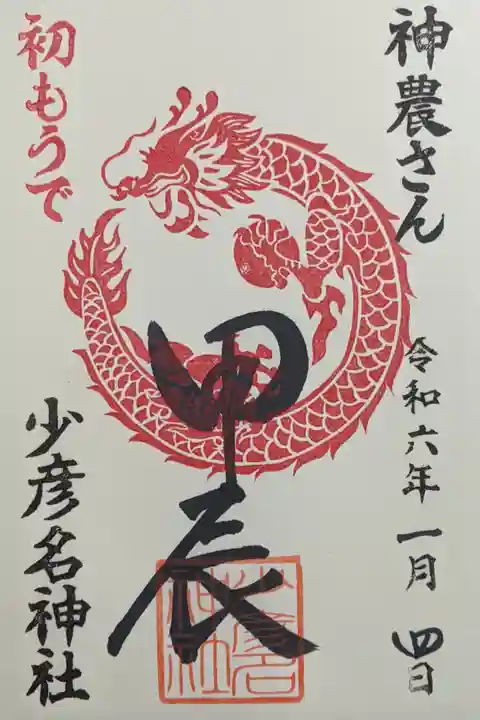 神農さん
令和六年一月四日
甲辰
初もうで
少彦名神社
少彦名
神社